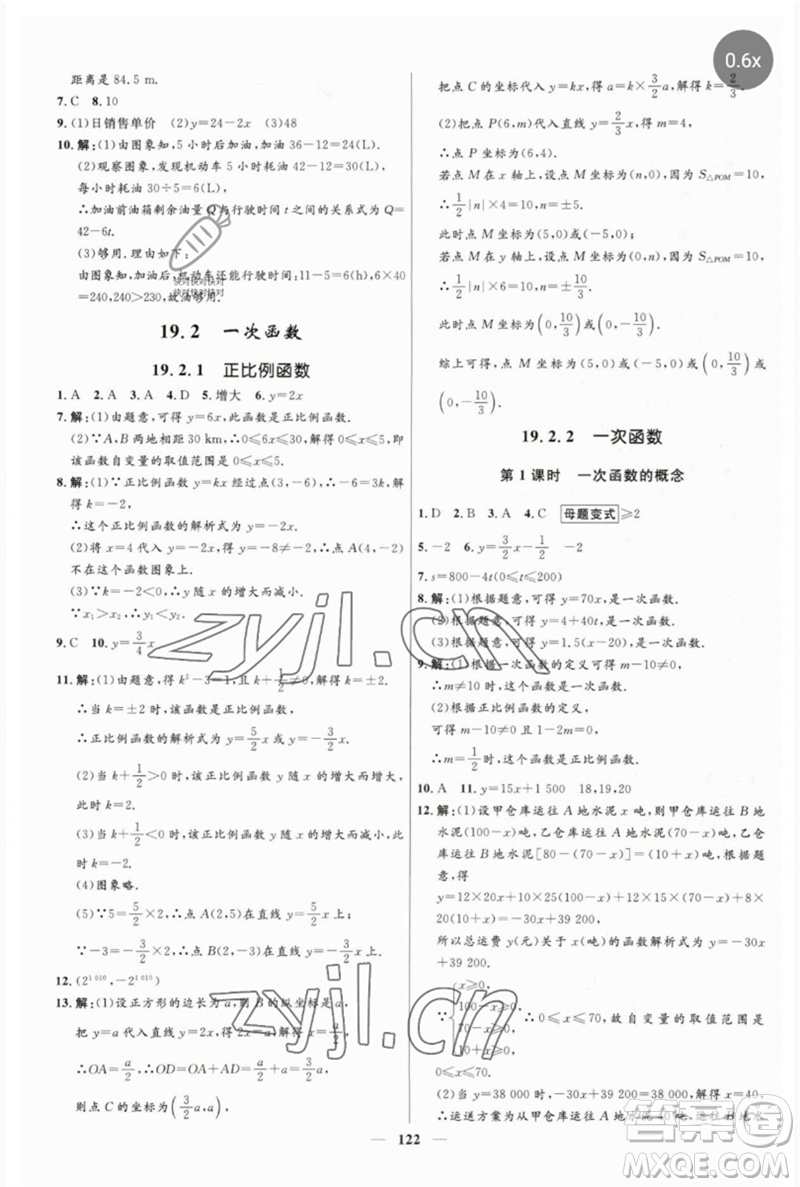 0.6x
距离是 84.5 m.
7. C 8. 10
9. (1)日销售单价 (2)y=24-2x (3)48
10. 解:(1)由图象知,5小时后加油,加油 36-12=24(L).
(2)观察图象,发现机动车 5 小时耗油 42-12=30(L),
每小时耗油 30÷5=6(L).
∴加油前油箱剩余油量 Q 与行驶时间 t 之间的关系式为 Q=
42-6t.
(3)够用. 理由如下:
由图象知,加油后,机动车还能行驶时间:11-5=6(h),6×40
=240,240>230,故油够用.
快对快对快对
快对快对快对
19.2 一次函数
19.2.1 正比例函数
1. A 2. A 3. A 4. D 5. 增大 6. y=2x
7. 解:(1)由题意,可得 y=6x,此函数是正比例函数.
(2)∵A,B 两地相距 30 km,∴0≤6x≤30,解得 0≤x≤5,即该
函数自变量的取值范围是 0≤x≤5.
8. 解:(1)∵正比例函数 y=kx 经过点(3,-6),∴-6=3k,
解得 k=-2,
∴这个正比例函数的解析式为 y=-2x.
(2)将 x=4 代入 y=-2x,得 y=-8≠-2,∴点 A(4,-2)
不在这个函数图象上.
(3)∵k=-2<0,∴y 随 x 的增大而减小.
∵x₁>x₂,∴y₁<y₂.
9. C 10. y=3/4 x
11. 解:(1)由题意,得 k²-3=1,且 k+1/2≠0,∴k=±2.
∴当 k=±2 时,该函数是正比例函数,
∴正比例函数的解析式为 y=5/2 x 或 y=-3/2 x.
(2)当 k+1/2>0 时,该正比例函数 y 随 x 的增大而增大,
此时 k=2.
(3)当 k+1/2<0 时,该正比例函数 y 随 x 的增大而减小,此
时 k=-2.
(4)图象略.
(5)∵5=5/2×2,∴点 A(2,5)在直线 y=5/2 x 上.
∵-3=-3/2×2,∴点 B(2,-3)在直线 y=-3/2 x 上.
12. (2^1 010,-2^1 010)
13. 解:(1)设正方形的边长为 a,则 B 的纵坐标是 a,
把 y=a 代入直线 y=2x,得 2x=a,解得 x=a/2.
∴OA=a/2,∴OD=OA+AD=a/2+a=3/2 a,
则点 C 的坐标为(3/2 a,a),
把点 C 的坐标代入 y=kx,得 a=3/2 a·k,解得 k=2/3.
(2)把点 P(6,m)代入直线 y=2/3 x,得 m=2/3×6=4,
∴点 P 的坐标为(6,4).
若点 M 在 x 轴上,设点 M 坐标为(n,0),因为 S△POM=10,
∴1/2|n|×4=10,n=±5.
此时点 M 坐标为(5,0)或(-5,0).
若点 M 在 y 轴上,设点 M 坐标为(0,n),因为 S△POM=10,
∴1/2|n|×6=10,n=±10/3.
此时点 M 坐标为(0,10/3)或(0,-10/3).
综上可得,点 M 的坐标为(5,0)或(-5,0)或(0,10/3)或
(0,-10/3).
19.2.2 一次函数
第 1 课时 一次函数的概念
1. D 2. B 3. A 4. C 母题变式 ≥2
5. -2 6. y=3/2 x-1/2 -2
7. s=800-4t(0≤t≤200)
8. 解:(1)根据题意,可得 y=70x,是一次函数.
(2)根据题意,可得 y=4+40t,是一次函数.
(3)根据题意,可得 y=1.5(x-20),是一次函数.
9. 解:(1)根据一次函数的定义可得 m-10≠0,
∴m≠10 时,这个函数是一次函数.
(2)根据正比例函数的定义,
可得 m-10≠0 且 1-2m=0,
∴m=1/2 时,这个函数是正比例函数.
10. A 11. y=15x+1 500 18,19,20
12. 解:(1)设甲仓库运往 A 地水泥 x 吨,则甲仓库运往 B 地
水泥(100-x)吨,乙仓库运往 A 地水泥(70-x)吨,乙仓库
运往 B 地水泥[80-(70-x)]=(10+x)吨,根据题意,
得
y=12×20x+10×25(100-x)+12×15(70-x)+8×
20(10+x)=-30x+39 200,
所以总运费 y(元)关于 x(吨)的函数解析式为 y=-30x
+39 200.
∵{x≥0, 
70-x≥0, ∴0≤x≤70,故自变量的取值范围是
0≤x≤70.
(2)当 y=38 000 时,-30x+39 200=38 000,解得 x=40,
∴运送方案为从甲仓库运往 A 地水泥
zyjl.cn
zyjl.cn
答案圈
MXQE.COM
122